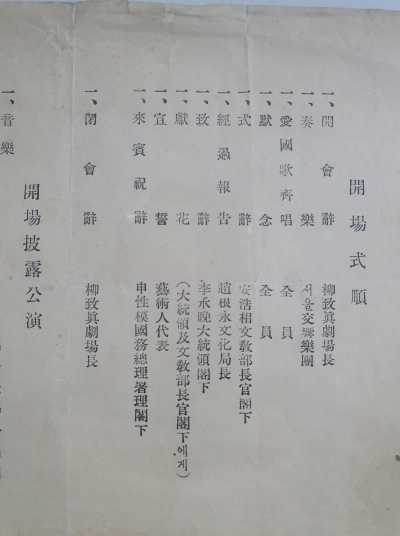 開場式順
一、開會辭 柳致眞劇場長
一、奏樂 서울交響樂團
一、愛國歌齊唱 全員
一、默念 全員
一、式辭 安浩相文敎部長官閣下
一、經過報告 趙根永文化局長
一、致辭 李承晩大統領閣下
一、獻花 (大統領及文敎部長官閣下에게)
一、宣誓 藝術人代表
一、來賓祝辭 申性模國務總理署理閣下
一、閉會辭 柳致眞劇場長
開場披露公演
一、音樂